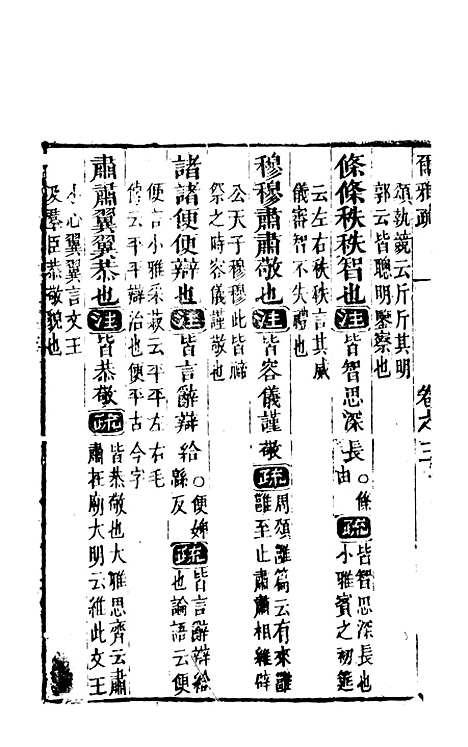 爾雅疏 卷之三
頌執競云斤斤其明
郭云皆聰明鑒察也
條條秩秩智也注皆智思深長○條由疏皆智思深長也小雅賓之初筵
云左右秩秩言其威
儀審智不失禮也
穆穆肅肅敬也注皆容儀謹敬疏周頌雝篇云有來雝雝至止肅肅相維辟
公天子穆穆此皆禘
祭之時容儀謹敬也
諸諸便便辯也注皆言辭辯給○便婢緜反疏皆言辭辯給也論語云便
便言小雅采菽云平平左右毛
傳云平平辯治也便平古今字
肅肅翼翼恭也注皆恭敬疏皆恭敬也大雅思齊云肅肅在廟大明云維此文王
小心翼翼言文王
及羣臣恭敬貌也